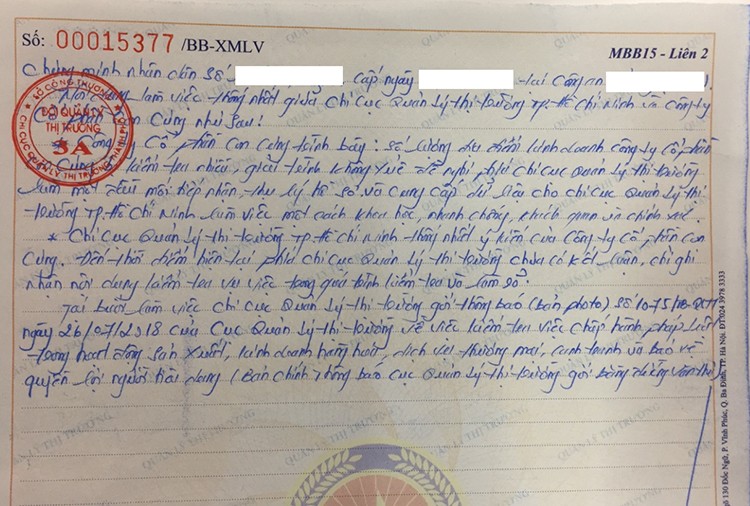 Số: 00015377 /BB-XMLV
MBB15 - Liên 2
Chứng minh nhân dân số cấp ngày tại Công an
Nội dung làm việc thống nhất giữa Chi cục Quản Lý thị trường TP. Hồ Chí Minh và Công ty
Cổ phần Con Cưng như sau:
BỘ CÔNG THƯƠNG
ĐỘI QUẢN LÝ
THỊ TRƯỜNG
3A
CHI CỤC QUẢN LÝ THỊ TRƯỜNG THÀNH PHỐ
Công ty Cổ phần Con Cưng trình bày: số lượng địa điểm kinh doanh công ty cổ phần
Con Cưng kiểm tra nhiều, giải trình không xuể đề nghị phía Chi cục Quản Lý thị trường
làm một đầu mối tiếp nhận, thụ lý hồ sơ và cung cấp dữ liệu cho chi cục Quản Lý thị
trường TP. Hồ Chí Minh làm việc một cách khoa học, nhanh chóng, khách quan và chính xác.
* Chi cục Quản Lý thị trường TP. Hồ Chí Minh thống nhất ý kiến của Công ty Cổ phần Con
Cưng. Đến thời điểm hiện tại phía Chi cục Quản Lý thị trường chưa có kết luận, chỉ ghi
nhận nội dung kiểm tra vụ việc trong quá trình kiểm tra và làm rõ.
Tại buổi làm việc Chi cục Quản Lý thị trường gởi thông báo (bản photo) số 1075/
ngày 26/07/2018 của Cục Quản Lý thị trường về việc kiểm tra việc chấp hành pháp luật
trong hoạt động sản xuất, kinh doanh hàng hoá, dịch vụ thương mại, cạnh tranh và bảo vệ
quyền lợi người tiêu dùng (Bản chính thông báo Cục Quản Lý thị trường gởi bằng đường văn thư)
130 Đốc Ngữ, P. Vĩnh Phúc, Q. Ba Đình, TP. Hà Nội. ĐT: 024 3978 3333
QUẢN LÝ THỊ TRƯỜNG